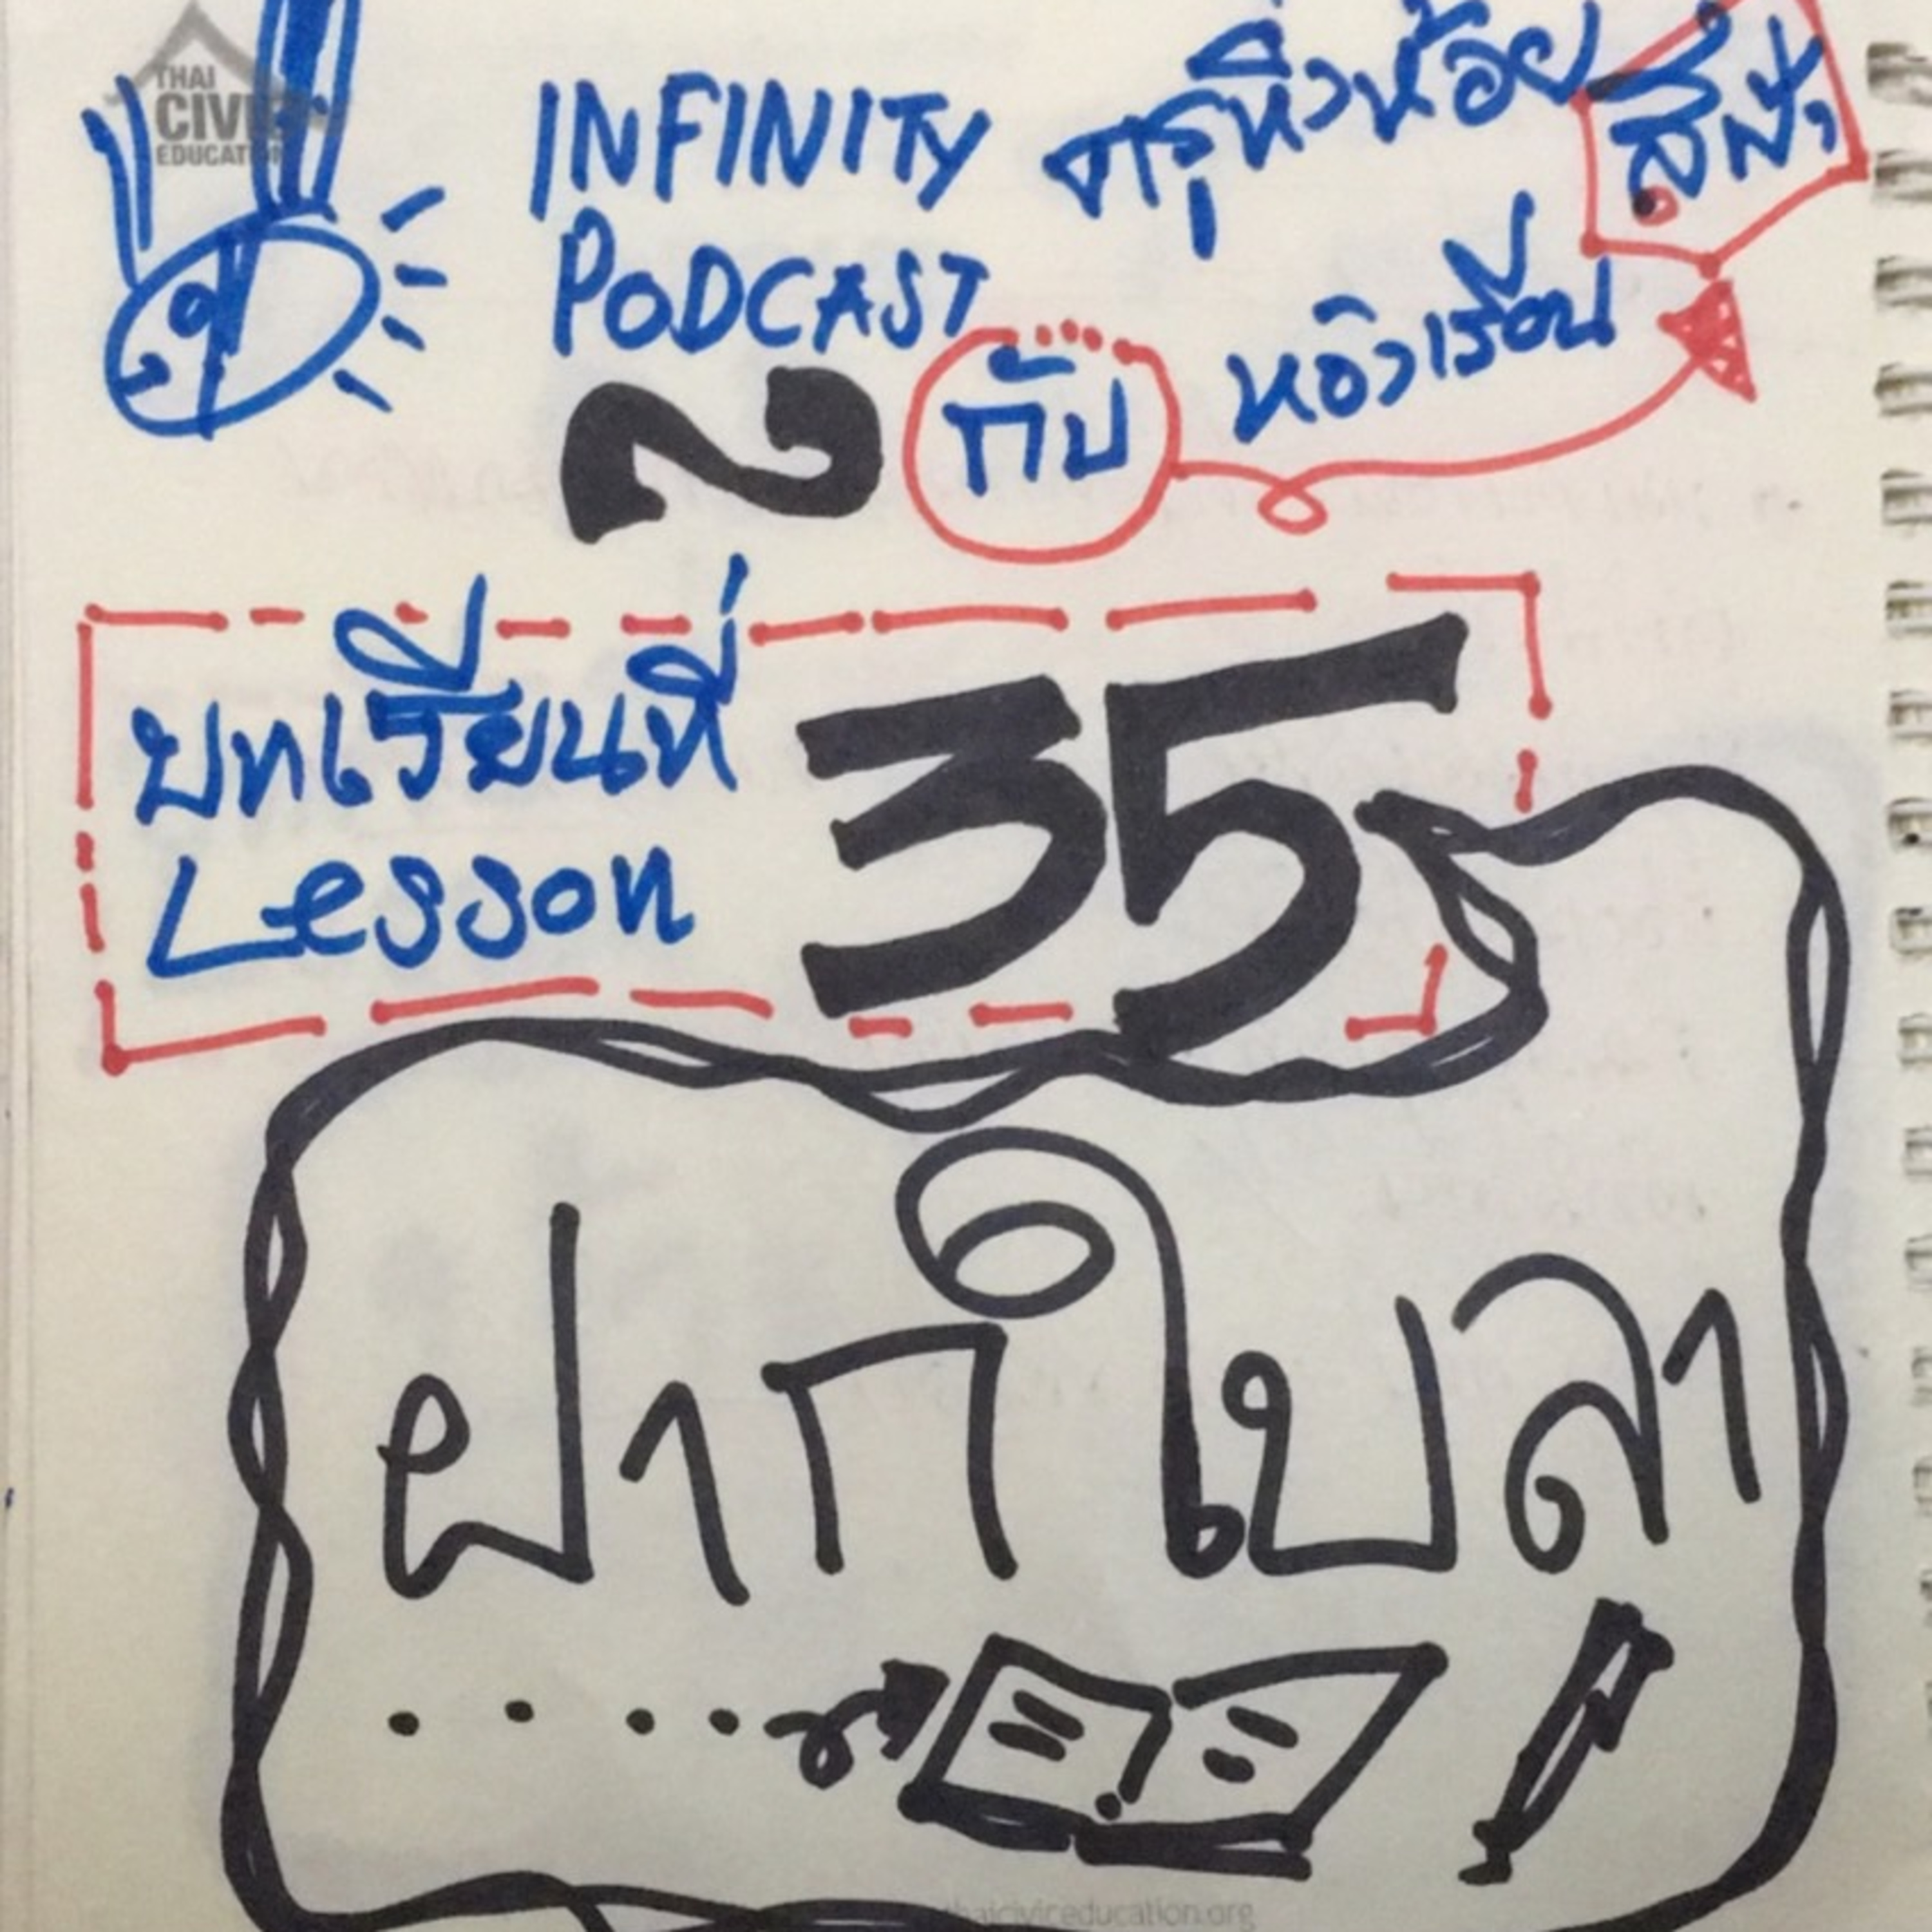 THAI
CIVIC
EDUCATION
INFINITY
PODCAST
2
กับ
ครูหิ่งห้อย
สีฟ้า
หลังเรียน
บทเรียนที่
Lesson
35
ฝากใบลา
thaiciviceducation.org